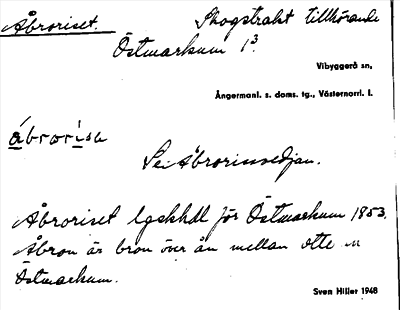 Åbroriset. Skogstrakt tillhörande
Östmarkum 1³.
Vibyggerå sn,
Ångermanl. s. doms. tg., Västernorrl. l.
åbrorisa
Se Åbrorissvedjan.
Åbroriset lgskhdl för Östmarkum 1853.
Åbron är bron över ån mellan Utte
Östmarkum.
Sven Hiller 1948